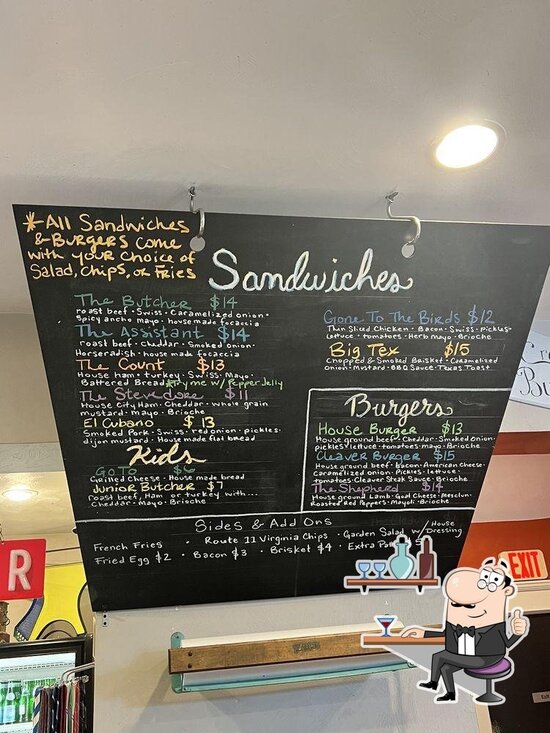 *All Sandwiches
& Burgers come
with your choice of
Salad, Chips, or Fries
Sandwiches
The Butcher $14
roast beef · Swiss · Caramelized onion ·
Spicy ancho mayo · house made focaccia
The Assistant $14
roast beef · Cheddar · Smoked onion ·
Horseradish · house made focaccia
The Count $13
House ham · turkey · Swiss · Mayo ·
Battered Bread try me w/ Pepper Jelly
The Stevedore $11
House City Ham · Cheddar · whole grain
mustard · mayo · Brioche
El Cubano $13
Smoked Pork · Swiss · red onion · pickles ·
dijon mustard · House made flat bread
Kids
Go To $6
Grilled Cheese · House made bread
Junior Butcher $7
roast beef, Ham or turkey with...
Cheddar · Mayo · Brioche
Gone To The Birds $12
Thin Sliced Chicken · Bacon · Swiss · pickles ·
lettuce · tomatoes · Herb mayo · Brioche
Big Tex $15
Chopped & Smoked Brisket · Caramelized
onion · Mustard · BBQ Sauce · Texas Toast
Burgers
House Burger $13
House ground beef · Cheddar · Smoked Onion ·
pickles · lettuce · tomatoes · mayo · Brioche
Cleaver Burger $15
House ground beef · Bacon · American Cheese ·
caramelized onion · Pickles · lettuce ·
tomatoes · Cleaver Steak Sauce · Brioche
The Shepherd $14
House ground Lamb · Goat Cheese · Mesclun ·
Roasted Red Peppers · Mayo · Brioche
Sides & Add Ons
French Fries · Route 11 Virginia Chips · Garden Salad w/ House Dressing
Fried Egg $2 · Bacon $3 · Brisket $4 · Extra
EXIT
R